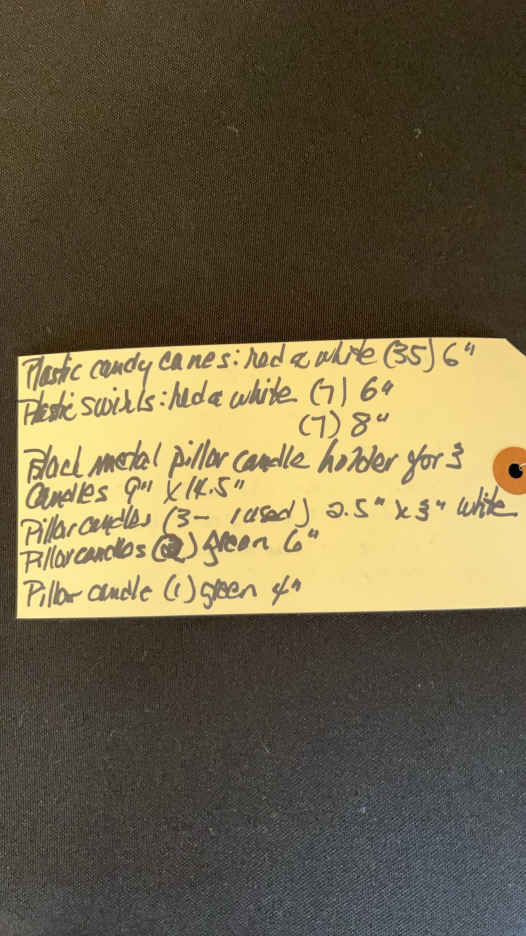 Plastic candy canes: red & white (35) 6"
Plastic swirls: red & white (7) 6"
(7) 8"
Black metal pillar candle holder for 3
Candles 9" x 14.5"
Pillar candles (3- 1 used) 2.5" x 3" white
Pillar candles (2) green 6"
Pillar candle (1) green 4"